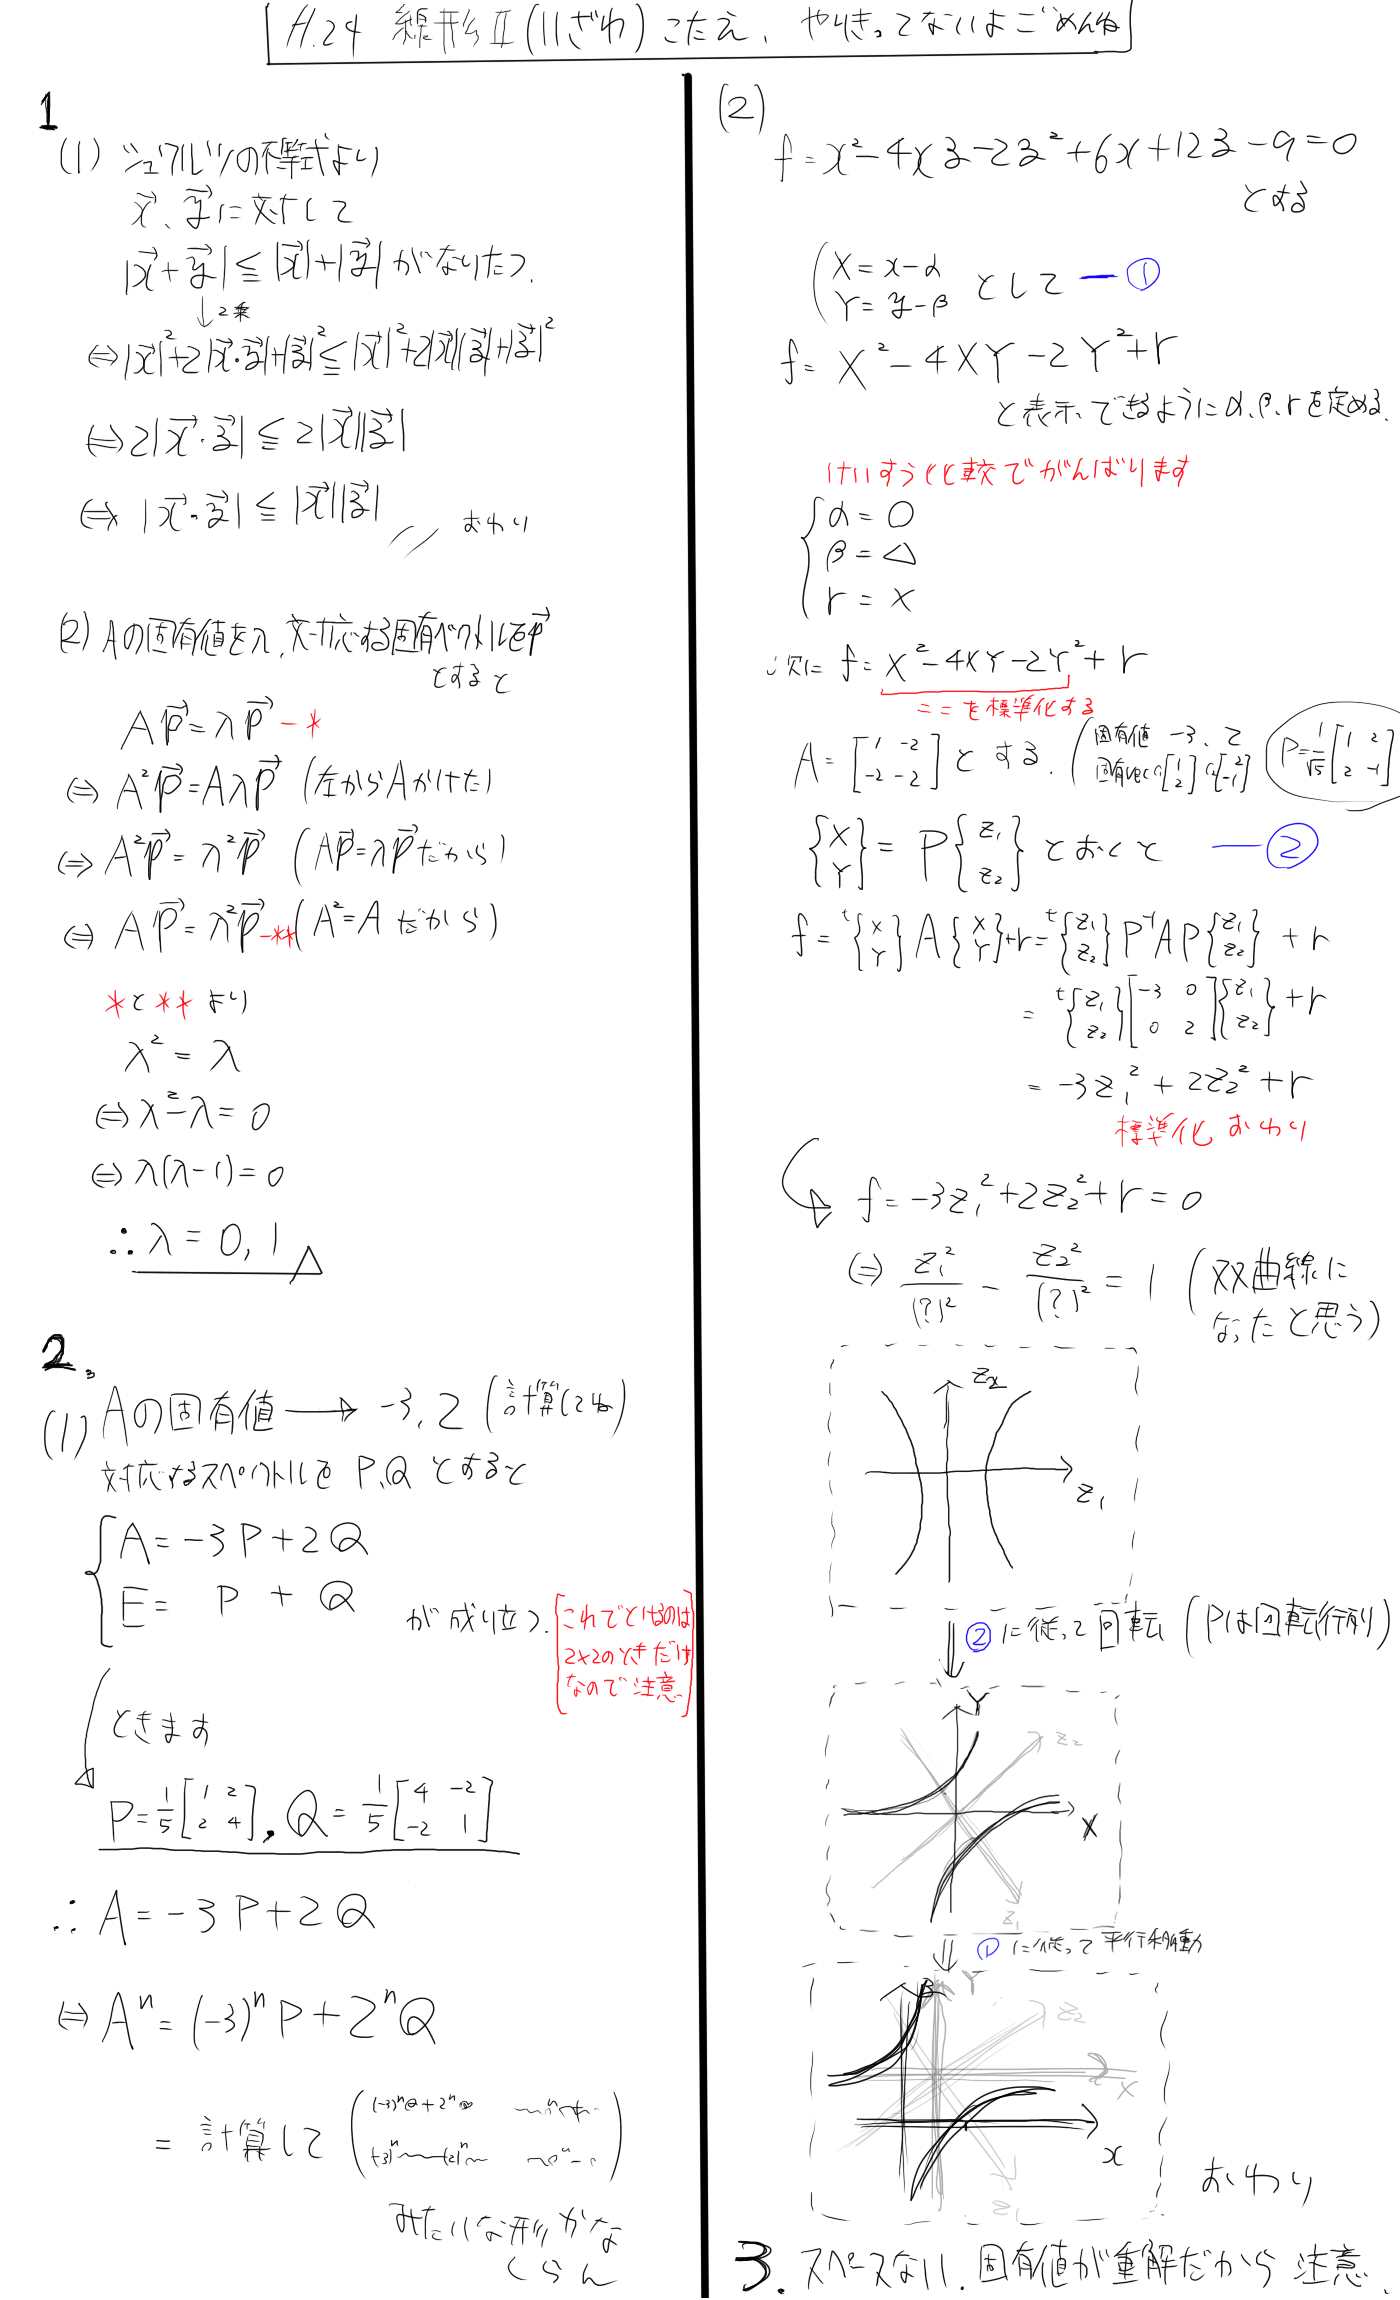 H.24 線形Ⅱ(いざわ) こたえ、やりきってないよごめんね
1
(1) シュワルツの不等式より
x⃗、y⃗に対して
|x⃗+y⃗|≦|x⃗|+|y⃗| がなりたつ.
↓2乗
⇔|x⃗|²+2|x⃗・y⃗|+|y⃗|²≦|x⃗|²+2|x⃗||y⃗|+|y⃗|²
⇔2|x⃗・y⃗|≦2|x⃗||y⃗|
⇔ |x⃗・y⃗|≦|x⃗||y⃗| // おわり
(2) Aの固有値をλ、対応する固有ベクトルをp⃗
とすると
Ap⃗=λp⃗ -*
⇔ A²p⃗=Aλp⃗ (左からAかけた)
⇔ A²p⃗=λ²p⃗ (Ap⃗=λp⃗だから)
⇔ Ap⃗=λ²p⃗ -** (A²=Aだから)
*と**より
λ²=λ
⇔λ²-λ=0
⇔λ(λ-1)=0
∴λ=0,1
2.
(1) Aの固有値 → -3,2 (計算してね)
対応するスペクトルをP,Qとすると
A=-3P+2Q
E= P + Q
が成り立つ.
[これでとけるのは
2×2のときだけ
なので注意]
ときます
P=1/5[1 2
2 4], Q=1/5[4 -2
-2 1]
∴A=-3P+2Q
⇔Aⁿ=(-3)ⁿP+2ⁿQ
=計算して
みたいな形かな
しらん
(2)
f=x²-4xy-2y²+6x+12y-9=0
とする
(X=x-α
Y=y-β として ー①
f=X²-4XY-2Y²+r
と表示できるようにα,β,rを定める.
けいすうひ較でがんばります
{α=○
β=△
r=×
次に f=X²-4XY-2Y²+r
ここを標準化する
A=[1 -2
-2 -2]とする. (固有値 -3、2
固有vec C₁[1
2] C₂[2
-1] P=1/√5[1 2
2 -1]
{X
Y}=P{z₁
z₂}とおくと ー②
f=ᵗ{X
Y}A{X
Y}+r=ᵗ{z₁
z₂}P⁻¹AP{z₁
z₂}+r
=ᵗ{z₁
z₂}[-3 0
0 2]{z₁
z₂}+r
=-3z₁²+2z₂²+r
標準化 おわり
f=-3z₁²+2z₂²+r=0
⇔ z₁²/(?)² - z₂²/(?)² = 1 (双曲線に
なったと思う)
z₂
z₁
②に従って回転 (Pは回転行列)
Y
z₂
X
z₁
①に従って平行移動
Y
z₂
X
x
z₁
おわり
3. スペースない. 固有値が重解だから注意.